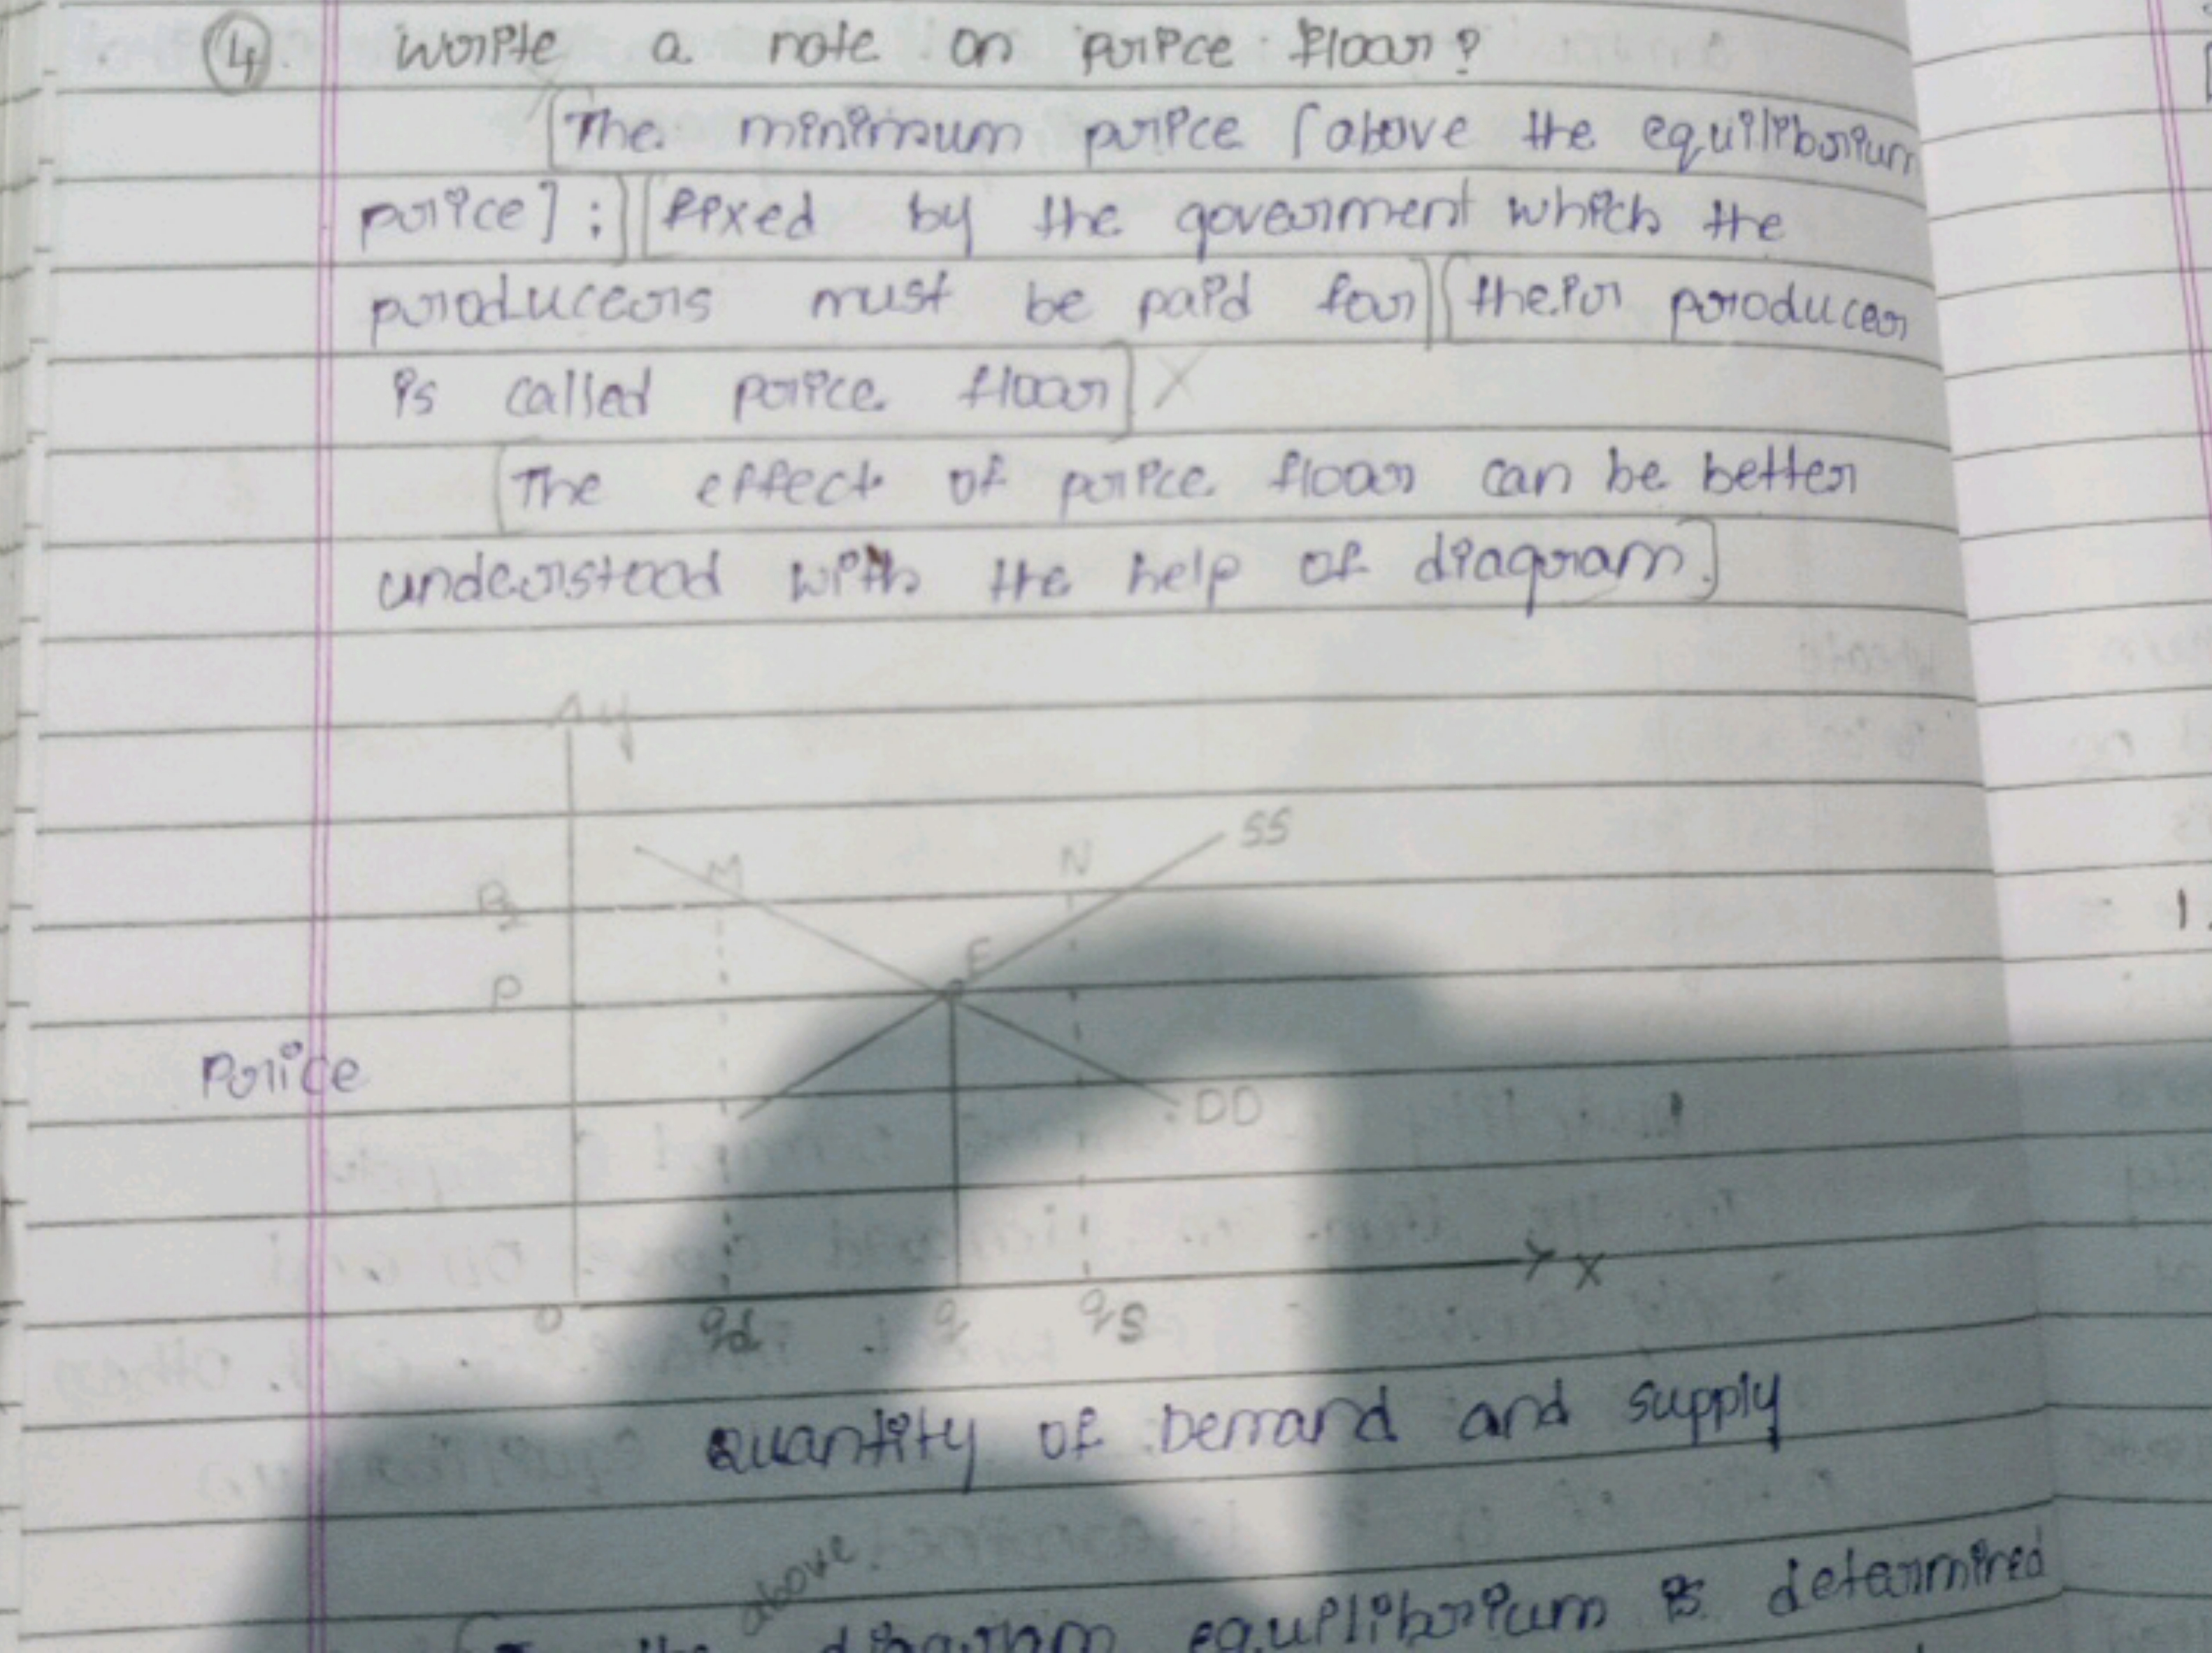 4 Write a note on price floor?
[The minimum price [above the equilibrium
price] ;] [fixed by the goverment which the
producers must be paid for] [their producer
is called price floor] X
[The effect of price floor can be better
understood with the help of diagram.]
y
SS
M N
E
P
Price
DD
X
O qd q qs
Quantity of Demand and supply
above
the diagram equilibrium is determined